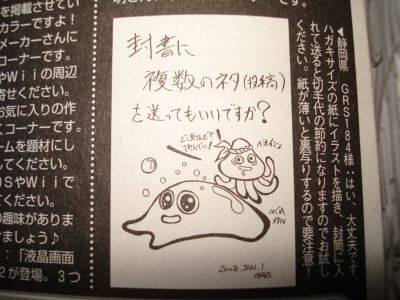 を掲載させてい
カラーですよ！
メーカーさんに
コーナーです。
SやWiiの周辺
寄せください。
お気に入りの作
くコーナーです。
ームを題材にし
してください。
DSやWiiで
してください。
の趣味がありま
けましょう♪
：「液晶画面
2が登場。3つ
封書に
複数のネタ(投稿)
を送ってもいいですか？
ベホイミン
はぐれ
メタル
2008.JAN.1
◀静岡県 GRS184様：はい、大丈夫です。
ハガキサイズの紙にイラストを描き、封筒に入
れて送ると切手代の節約になりますのでお試し
ください。紙が薄いと裏写りするので要注意！